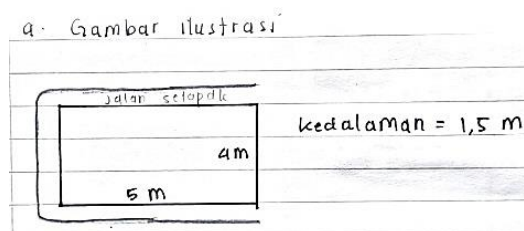 a. Gambar ilustrasi
jalan setapak
kedalaman = 1,5 m
4m
5 m